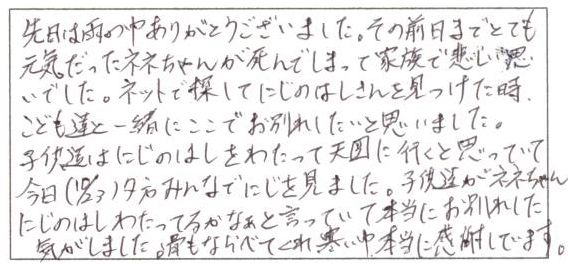 先日は雨の中ありがとうございました。その前日までとても
元気だったネネちゃんが死んでしまって家族で悲しい思
いでした。ネットで探してにじのはしさんを見つけた時、
こども達と一緒にここでお別れしたいと思いました。
子供達はにじのはしをわたって天国に行くと思っていて
今日()夕方みんなでにじを見ました。子供達がネネちゃん
にじのはしわたってるかなぁと言っていて本当にお別れした
気がしました。骨もならべてくれ寒い中本当に感謝しています。